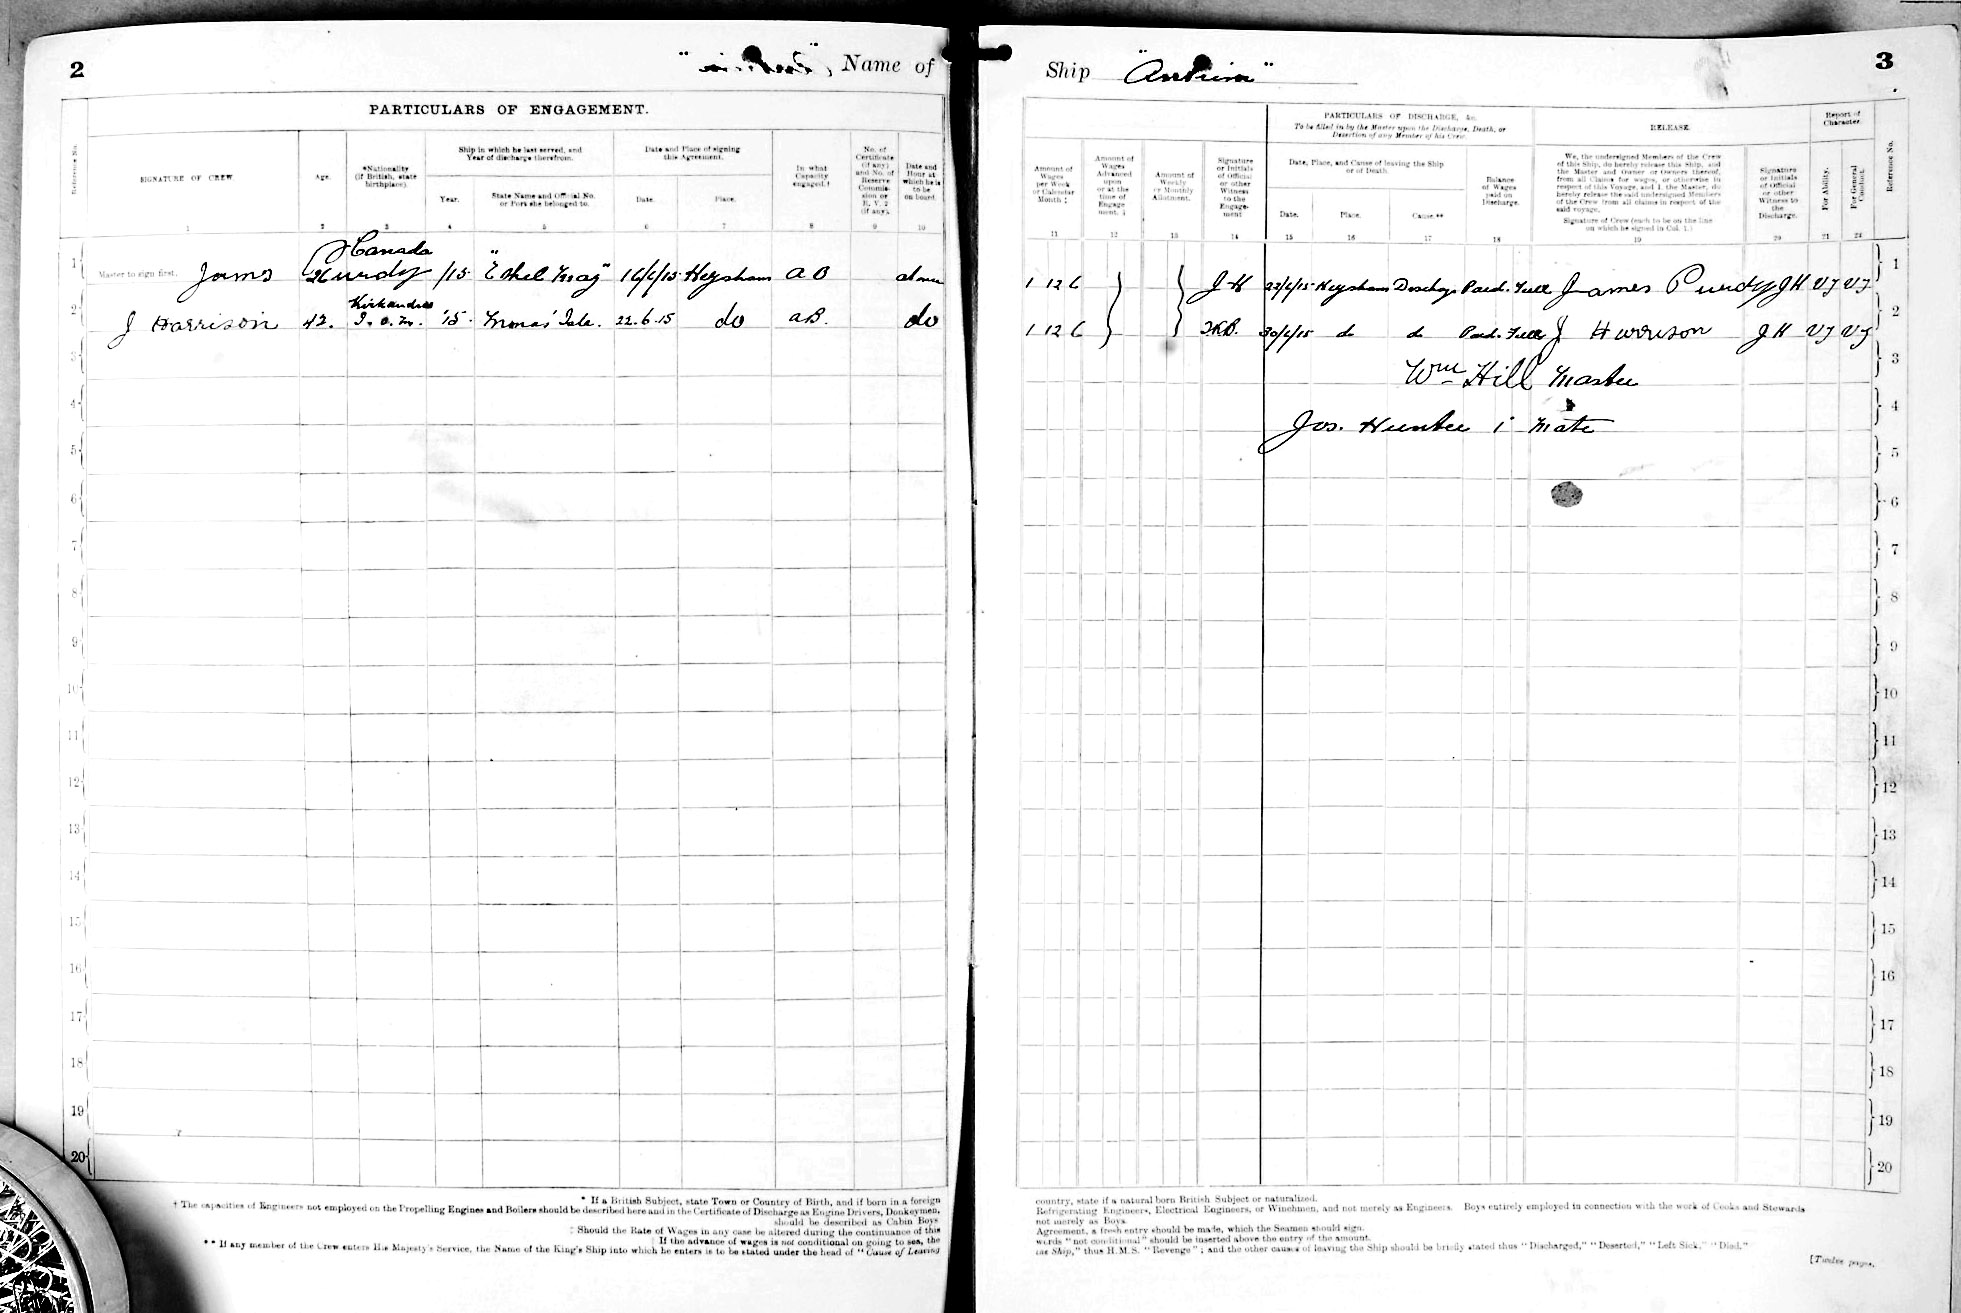 2
Name of
PARTICULARS OF ENGAGEMENT.
Reference No.
SIGNATURE OF CREW.
Age.
*Nationality (if British, state birthplace).
Ship in which he last served, and Year of discharge therefrom.
Year.
State Name and Official No. or Port she belonged to.
Date and Place of signing this Agreement.
Date.
Place.
In what Capacity engaged.†
No. of Certificate (if any) and No. of Reserve Commission or R. V. 2 (if any).
Date and Hour at which he is to be on board.
1 2 3 4 5 6 7 8 9 10
Canada
1 Master to sign first. James Purdy /15 "Ethel May" 16/6/15 Heysham AB
Kirkandrews
2 J Harrison 42. I.o.M. '15. Mona's Isle. 22.6.15 do AB. do
3
4
5
6
7
8
9
10
11
12
13
14
15
16
17
18
19
20
* If a British Subject, state Town or Country of Birth, and if born in a foreign
† The capacities of Engineers not employed on the Propelling Engines and Boilers should be described here and in the Certificate of Discharge as Engine Drivers, Donkeymen,
should be described as Cabin Boys.
‡ Should the Rate of Wages in any case be altered during the continuance of this
If the advance of wages is not conditional on going to sea, the
** If any member of the Crew enters His Majesty's Service, the Name of the King's Ship into which he enters is to be stated under the head of "Cause of Leaving
3
Ship "Antrim"
PARTICULARS OF DISCHARGE, &c.
To be filled in by the Master upon the Discharge, Death, or Desertion of any Member of his Crew.
RELEASE.
Report of Character.
Amount of Wages per Week or Calendar Month ‡
Amount of Wages Advanced upon or at the time of Engagement.
Amount of Weekly or Monthly Allotment.
Signature or Initials of Official or other Witness to the Engagement
Date, Place, and Cause of leaving the Ship or of Death.
Date.
Place.
Cause.**
Balance of Wages paid on Discharge.
We, the undersigned Members of the Crew of this Ship, do hereby release this Ship, and the Master and Owner or Owners thereof, from all Claims for wages, or otherwise in respect of this Voyage, and I, the Master, do hereby release the said undersigned Members of the Crew from all claims in respect of the said voyage.
Signature of Crew (each to be on the line on which he signed in Col. 1.)
Signature or Initials of Official or other Witness to the Discharge.
For Ability.
For General Conduct.
Reference No.
11 12 13 14 15 16 17 18 19 20 21 22
1 12 6 J H 22/6/15 Heysham Discharge Paid. Full James Purdy J H VG VG 1
1 12 6 30/6/15 do do Paid. Full J Harrison J H VG VG 2
Wm Hill Master 3
4
Jos. Hunter 1 Mate
5
6
7
8
9
10
11
12
13
14
15
16
17
18
19
20
country, state if a natural born British Subject or naturalized.
Refrigerating Engineers, Electrical Engineers, or Winchmen, and not merely as Engineers. Boys entirely employed in connection with the work of Cooks and Stewards
not merely as Boys.
Agreement, a fresh entry should be made, which the Seamen should sign.
words "not conditional" should be inserted above the entry of the amount.
the Ship," thus H.M.S. "Revenge"; and the other causes of leaving the Ship should be briefly stated thus "Discharged," "Deserted," "Left Sick," "Died."
[Twelve pages.